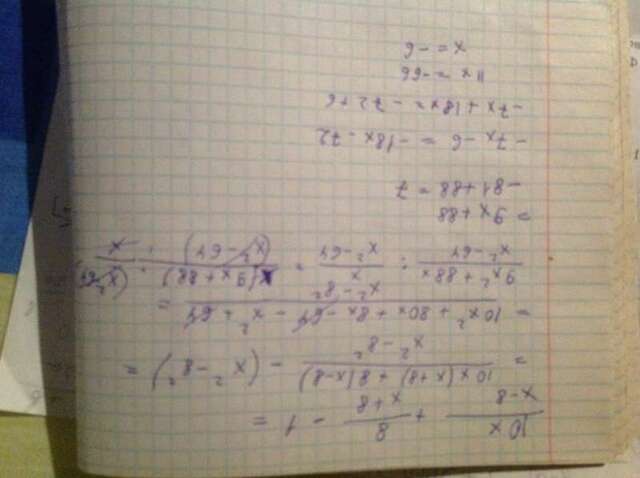 10x/(x-8) + 8/(x+8) - 1 =
= (10x(x+8) + 8(x-8))/(x² - 8²) - (x² - 8²) =
= (10x² + 80x + 8x - 64 - x² + 64)/(x² - 8²) =
(9x² + 88x)/(x² - 64) : x/(x² - 64) = (x(9x + 88))/(x² - 64) · (x² - 64)/x
= 9x + 88
- 81 + 88 = 7
- 7x - 6 = - 18x - 72
- 7x + 18x = - 72 + 6
11x = - 66
x = - 6